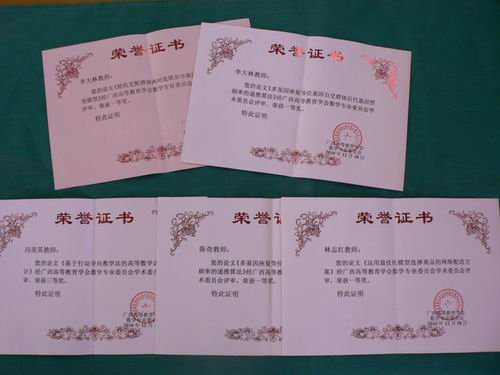 荣誉证书
李大林教师：
您的论文《随机交配群体两对连锁杂合基
变模型》经广西高等教育学会数学专业委员会
评审，荣获一等奖。
特此证明
荣誉证书
李大林教师：
您的论文《多基因座复等位基因自交群体后代基因型
频率的递推算法》经广西高等教育学会数学专业委员会学
术委员会评审，荣获一等奖。
特此证明
广西高等教育学会
数学专业委员会
2010年12月18日
荣誉证书
冯美英教师：
您的论文《基于行动导向教学法的高等数学
计》经广西高等教育学会数学专业委员会学术委
荣获三等奖。
特此证明
广西高等教育
数学专业委
2010年12月
荣誉证书
陈奇教师：
您的论文《多基因座复等位
频率的递推算法》经广西高等
术委员会评审，荣获一等奖。
特此证明
荣誉证书
林志红教师：
您的论文《运用最优化模型选择商品的网络配送方
案》经广西高等教育学会数学专业委员会学术委员会评审，
荣获一等奖。
特此证明
广西高等教育学会
数学专业委员会
2010年12月18日